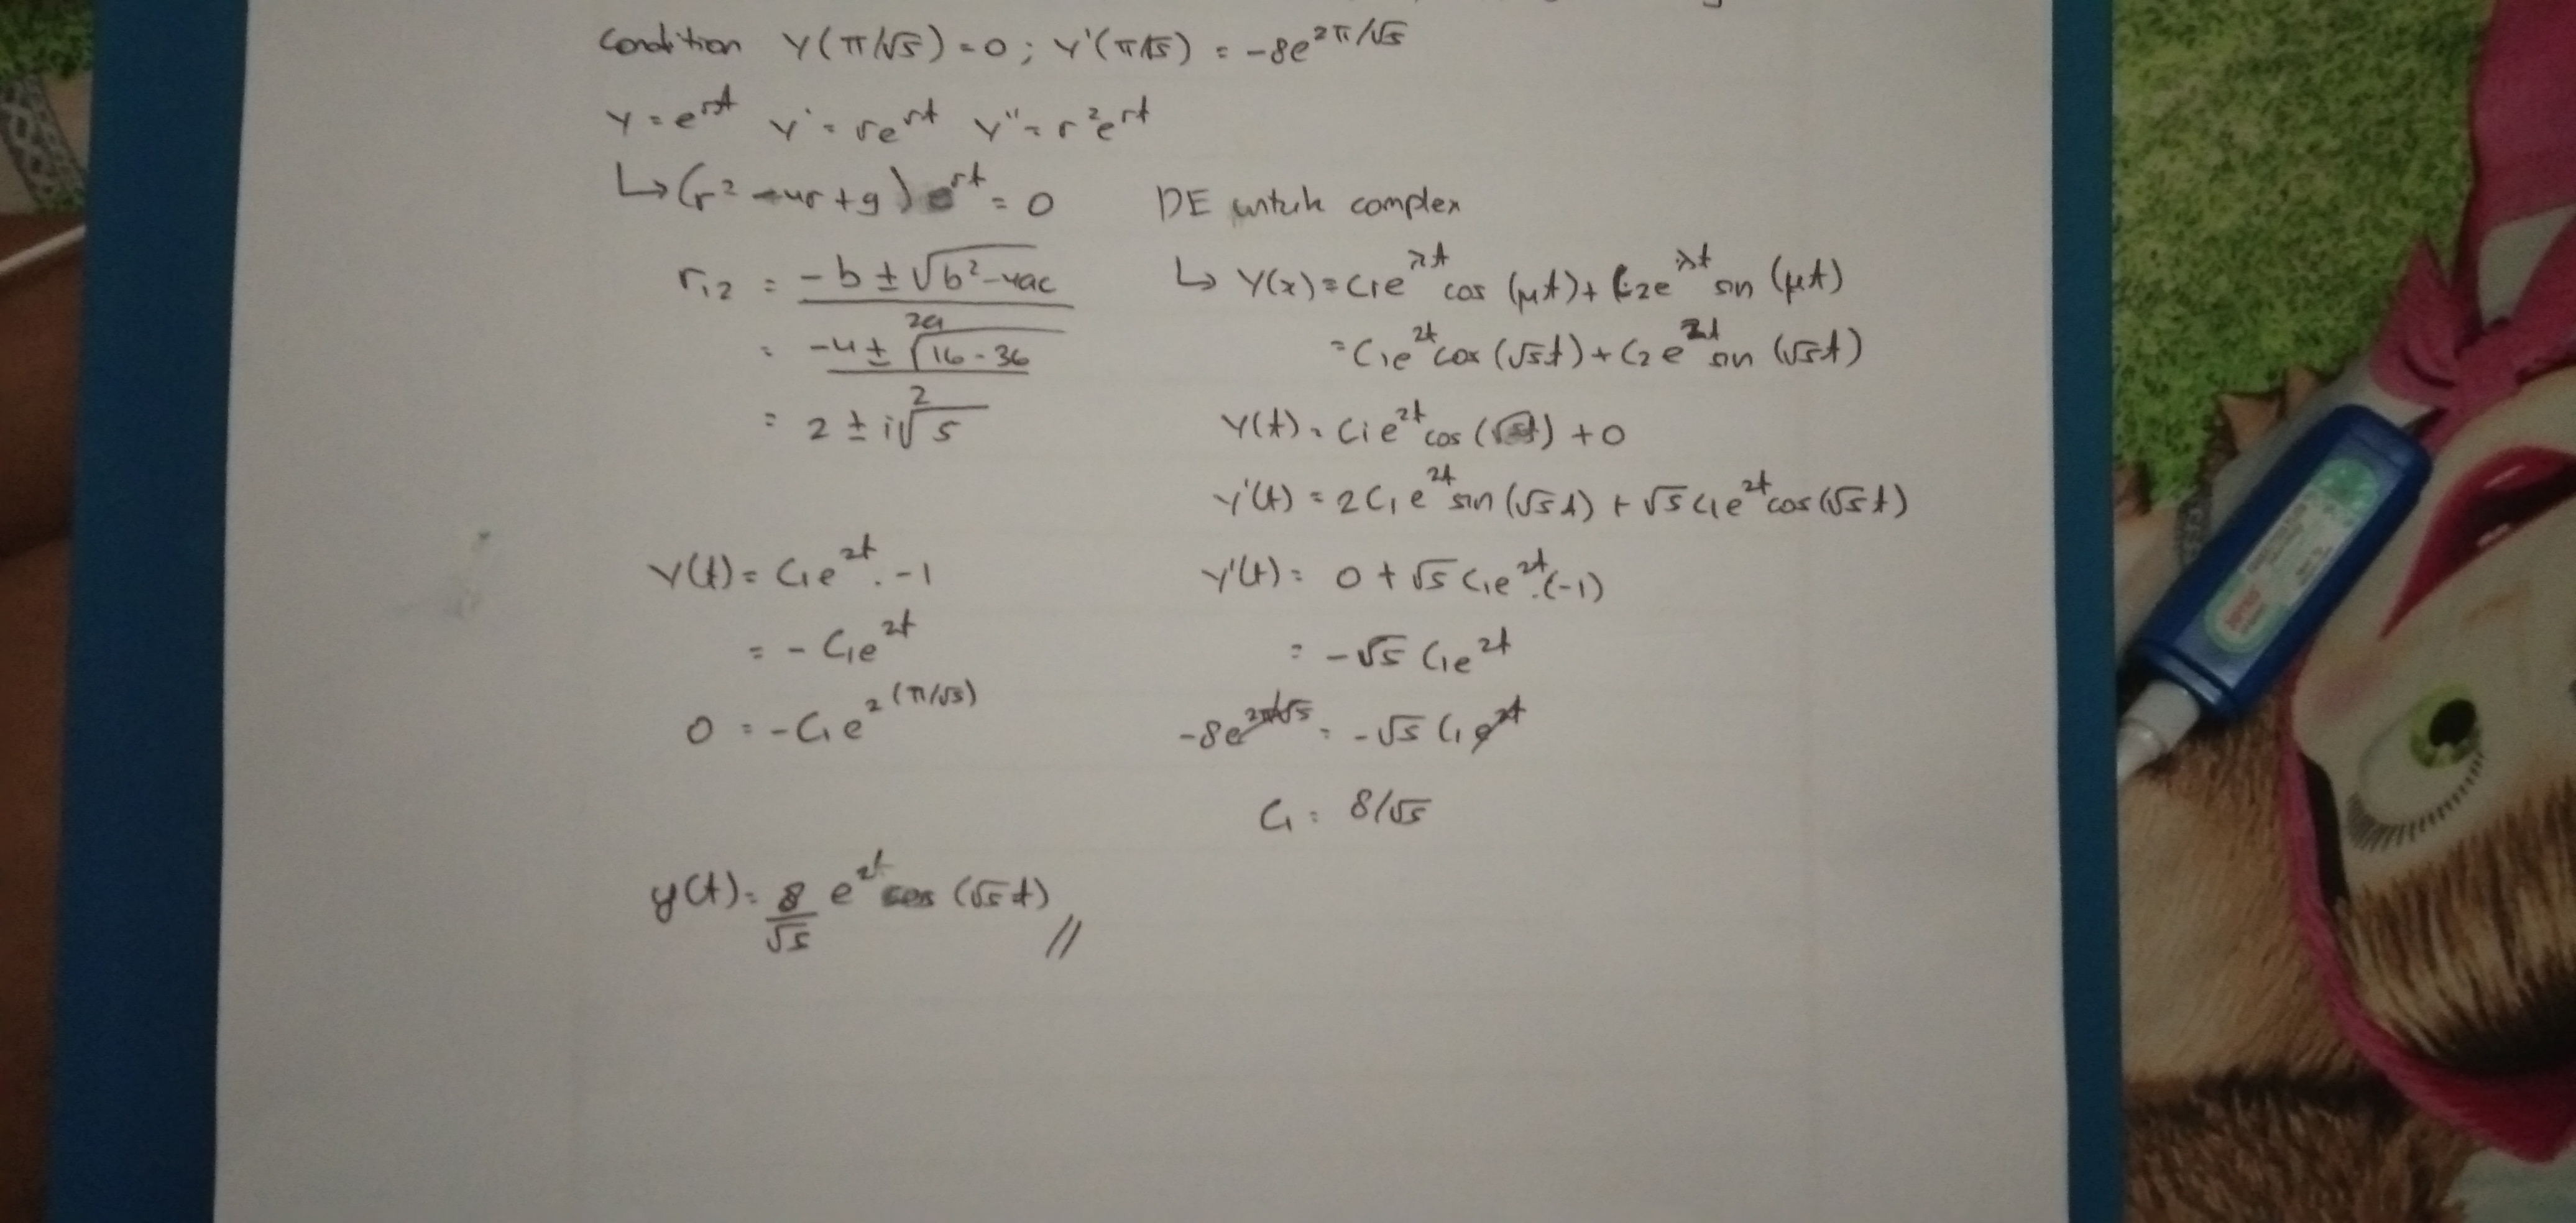 Condition Y(π/√5) = 0 ; Y'(π/√5) = -8e^(2π/√5)
y = e^(rt) y' = re^(rt) y'' = r²e^(rt)
↳ (r² - 4r + 9) e^(rt) = 0
r₁₂ = (-b ± √(b²-4ac)) / 2a
= (-4 ± √(16-36)) / 2
= 2 ± i√5
DE untuk complex
↳ Y(x) = C₁e^(λt) cos (μt) + C₂e^(λt) sin (μt)
= C₁e^(2t) cos (√5t) + C₂e^(2t) sin (√5t)
Y(t) = C₁e^(2t) cos (√5t) + 0
Y'(t) = 2C₁e^(2t) sin (√5t) + √5 C₁e^(2t) cos (√5t)
Y(t) = C₁e^(2t) . -1
= - C₁e^(2t)
0 = - C₁e^(2(π/√5))
Y'(t) = 0 + √5 C₁e^(2t) . (-1)
= -√5 C₁e^(2t)
-8e^(2π/√5) = -√5 C₁e^(2t)
C₁ = 8/√5
y(t) = 8/√5 e^(2t) cos (√5t) //